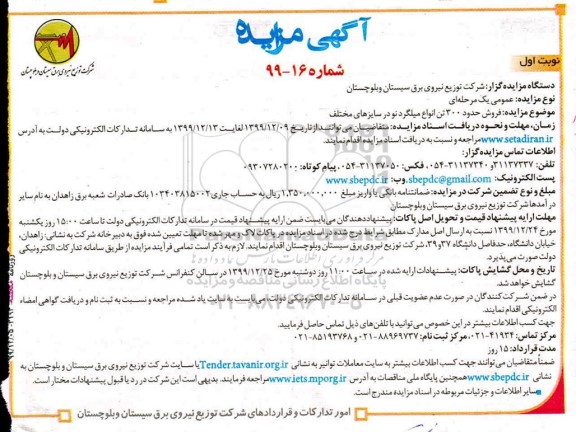 آگهی مزایده
شماره ۱۶-۹۹
نوبت اول
شرکت توزیع نیروی برق سیستان و بلوچستان
دستگاه مزایده گزار: شرکت توزیع نیروی برق سیستان وبلوچستان
نوع مزایده: عمومی یک مرحله‌ای
موضوع مزایده: فروش حدود ۳۰۰ تن انواع میلگرد نو در سایزهای مختلف
زمان، مهلت و نحوه دریافت اسناد مزایده: متقاضیان می توانند از تاریخ ۱۳۹۹/۱۲/۰۹ لغایت ۱۳۹۹/۱۲/۱۳ به سامانه تدارکات الکترونیکی دولت به آدرس
www.setadiran.ir مراجعه و نسبت به دریافت اسناد مزایده اقدام نمایند.
اطلاعات تماس مزایده گزار:
تلفن: ۳۱۱۳۷۳۳۷ و ۰۵۴-۳۱۱۳۷۳۴۰، فکس: ۰۵۴-۳۱۱۳۷۰۵۰، پیام کوتاه: ۰۹۳۰۷۲۸۰۲۰۰
پست الکترونیک: sbepdc@gmail.com، وب: www.sbepdc.ir
مبلغ و نوع تضمین شرکت در مزایده: ضمانتنامه بانکی یا واریز مبلغ ۱,۳۵۰,۰۰۰,۰۰۰ ریال به حساب جاری ۱۰۳۴۰۳۸۱۵۰۰۲ بانک صادرات شعبه برق زاهدان به نام سایر
درآمدها شرکت توزیع نیروی برق سیستان وبلوچستان
مهلت ارایه پیشنهاد قیمت و تحویل اصل پاکات: پیشنهاددهندگان می بایست ضمن ارایه پیشنهاد قیمت در سامانه تدارکات الکترونیکی دولت تا ساعت ۱۵:۰۰ روز یکشنبه
مورخ ۱۳۹۹/۱۲/۲۴ نسبت به ارسال اصل مدارک مطابق شرایط درج شده در اسناد مزایده در پاکات لاک و مهر شده تا مهلت تعیین شده فوق به دبیرخانه شرکت به نشانی: زاهدان،
خیابان دانشگاه، حدفاصل دانشگاه ۳۷ و ۳۹، شرکت توزیع نیروی برق سیستان وبلوچستان اقدام نمایند. لازم به ذکر است تمامی فرآیند مزایده از طریق سامانه تدارکات الکترونیکی
دولت صورت می پذیرد.
تاریخ و محل گشایش پاکات: پیشنهادات ارایه شده در ساعت ۱۱:۰۰ روز دوشنبه مورخ ۱۳۹۹/۱۲/۲۵ در سالن کنفرانس شرکت توزیع نیروی برق سیستان و بلوچستان
گشایش خواهد شد.
در ضمن شرکت کنندگان در صورت عدم عضویت قبلی در سامانه تدارکات الکترونیکی دولت، می بایست به سایت یاد شده مراجعه و نسبت به ثبت نام و دریافت گواهی امضاء
الکترونیکی اقدام نمایند.
جهت کسب اطلاعات بیشتر در این خصوص می توانید با تلفن های ذیل تماس حاصل فرمایید.
مرکز تماس: ۰۲۱-۴۱۹۳۴ مرکز ثبت نام: ۰۲۱-۸۸۹۶۹۷۳۷ و ۰۲۱-۸۵۱۹۳۷۶۸
مدت قرارداد: ۱۵ روز
ضمناً متقاضیان می توانند جهت کسب اطلاعات بیشتر به سایت معاملات توانیر به نشانی Tender.tavanir.org.ir یا سایت شرکت توزیع نیروی برق سیستان و بلوچستان به
نشانی www.sbepdc.ir همچنین پایگاه ملی مناقصات به آدرس www.iets.mporg.ir مراجعه فرمایند. بدیهی است این شرکت در رد یا قبول پیشنهادات مختار است.
سایر اطلاعات و جزئیات مربوطه در اسناد مزایده مندرج است.
امور تدارکات و قراردادهای شرکت توزیع نیروی برق سیستان وبلوچستان